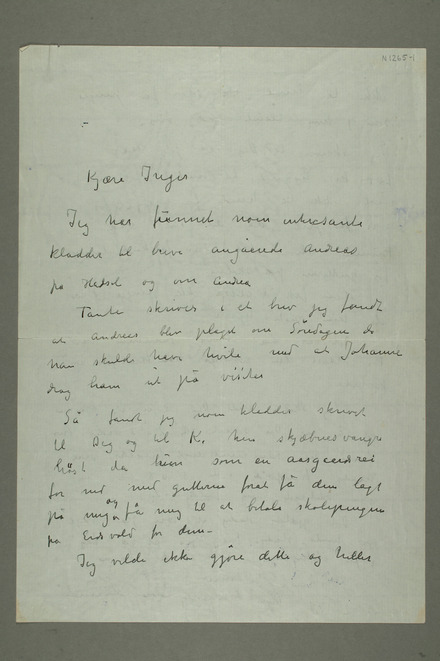 N1265-1
Kjære Inger
Jeg har funnet noen interesante
kladder til breve angående Andreas
på Hadsel og om Andrea
Tante skriver i et brev jeg fandt
at Andreas blev plaget om Söndagene da
han skulde have hvile med at Johanne
drog ham ut på visiter
Så fandt jeg noen kladder skrevet
til Dig og til K. hin skjæbnesvangre
höst da hun som en aasgaardsrei
for ned med guttene forat få dem lagt
på mig og få mig til at betale skolepengene
på Eidsvold for dem–
Jeg vilde ikke gjöre dette og heller